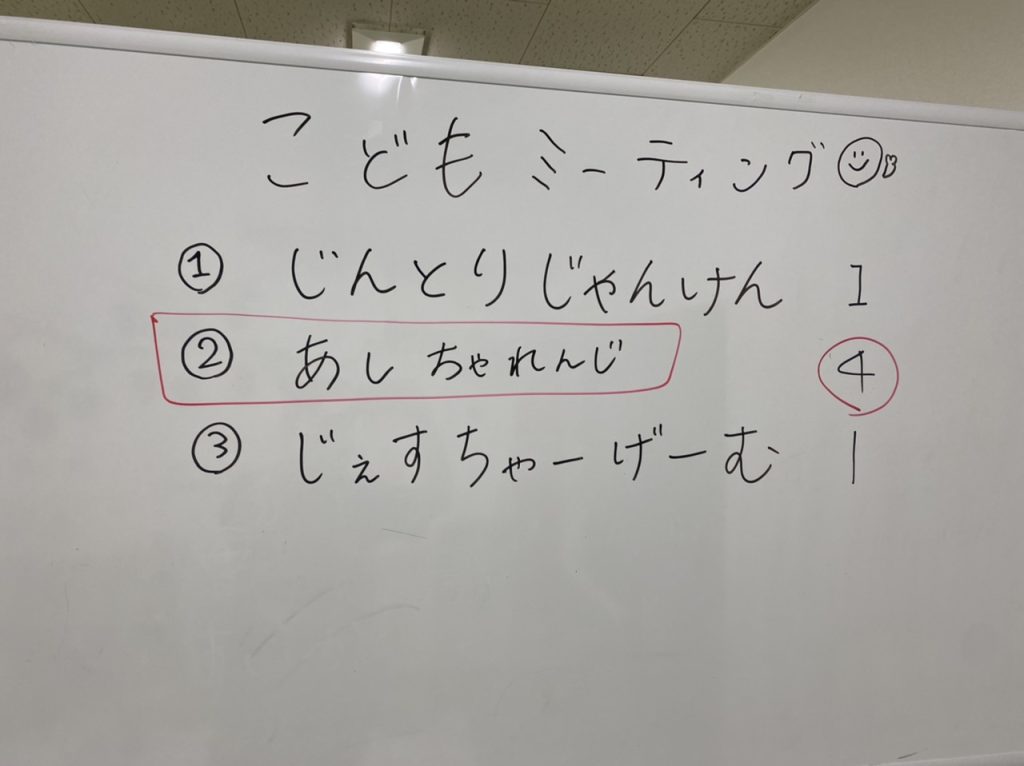 こどもミーティング
① じんとりじゃんけん 1
② あしちゃれんじ 4
③ じぇすちゃーげーむ 1